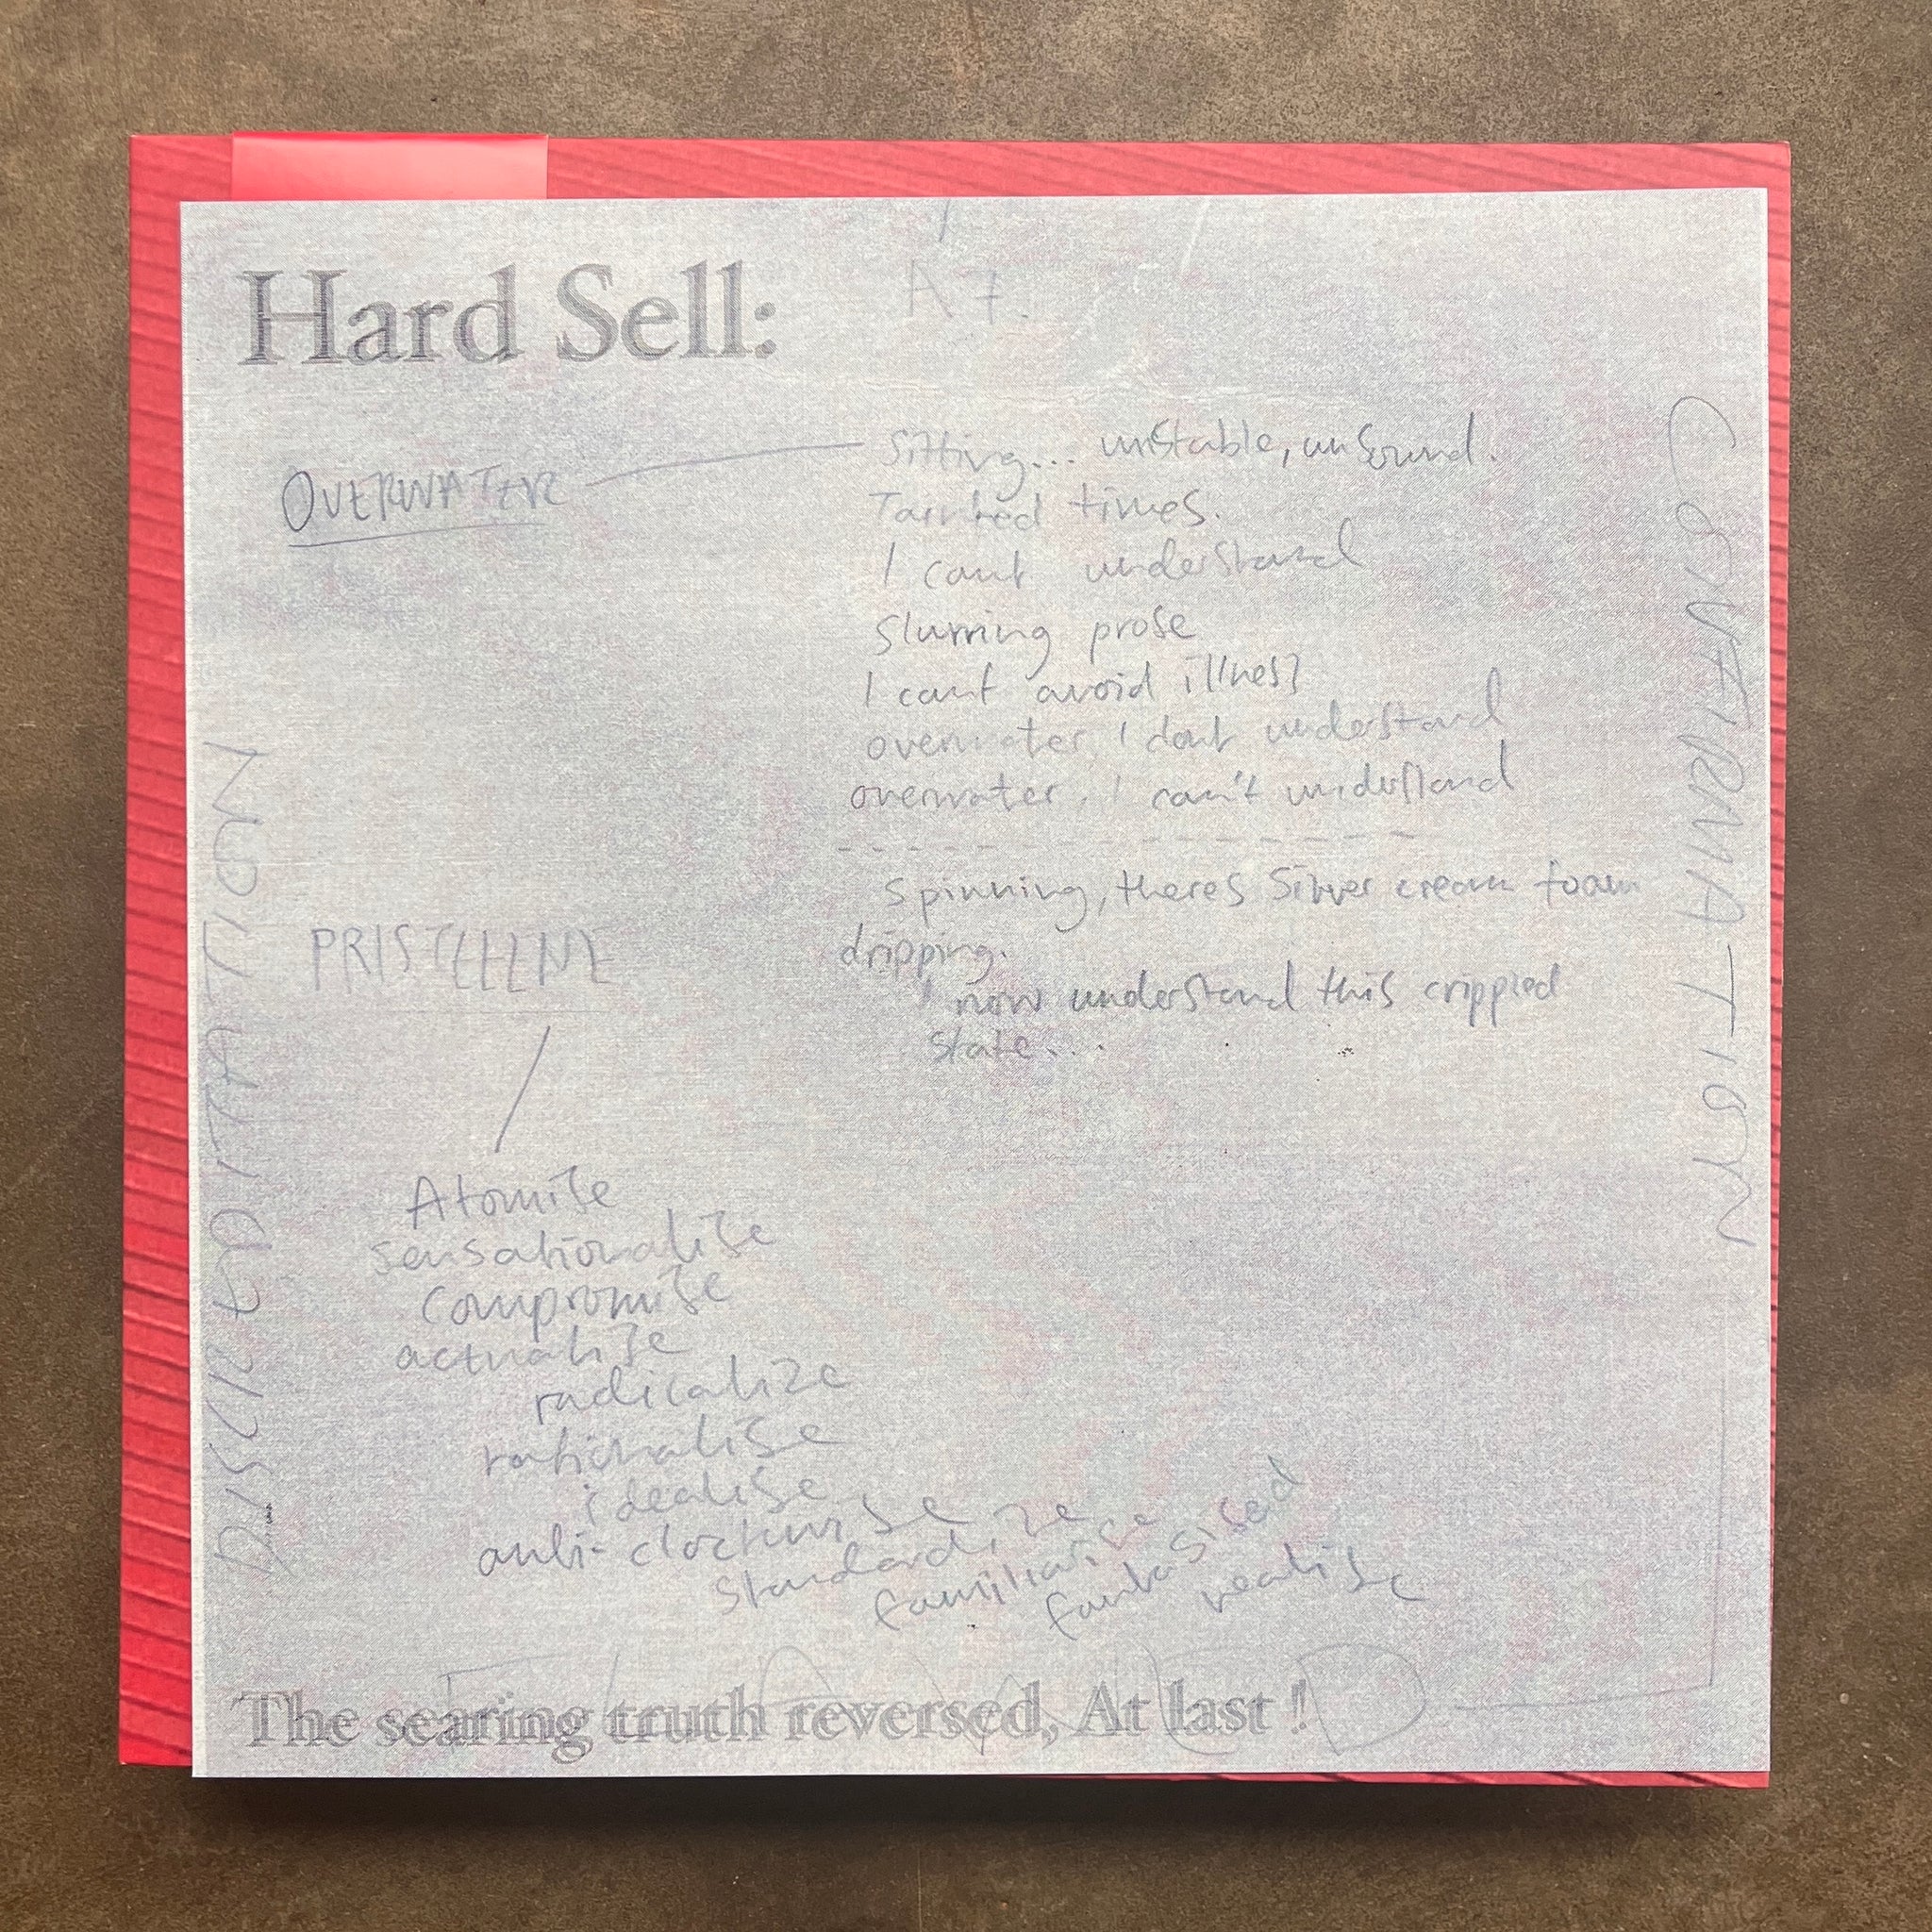 Hard Sell:
OVERWATER
Sitting... unstable, unsound.
Tainted times.
I cant understand
slurring prose
I cant avoid illness
overwater, I dont understand
overwater, I can't understand
Spinning, theres Silver cream foam
dripping.
I now understand this crippled
state...
CONFIRMATION
DISCREDITATION
Atomise
sensationalise
compromise
actualise
radicalize
rationalise
idealise
anti-clockwise
standardize
familiarise
fantasised
realise
The searing truth reversed, At last !